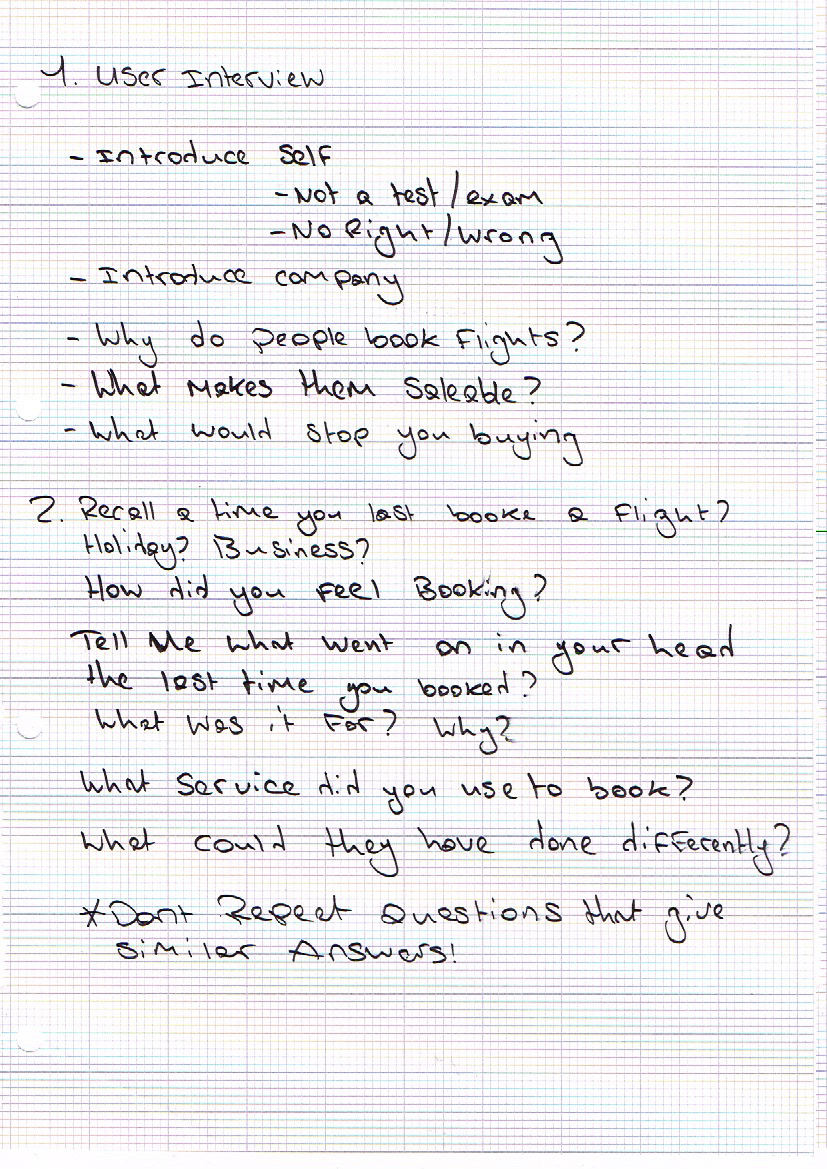 1. User Interview
- Introduce Self
- Not a test/exam
- No Right/wrong
- Introduce company
- Why do people book Flights?
- What Makes them Saleable?
- What would stop you buying
2. Recall a time you last booke a Flight?
Holiday? Business?
How did you Feel Booking?
Tell Me what went on in your head
the last time you booked?
What was it For? Why?
What Service did you use to book?
What could they have done differently?
*Dont Repeat Questions that give
similar Answers!